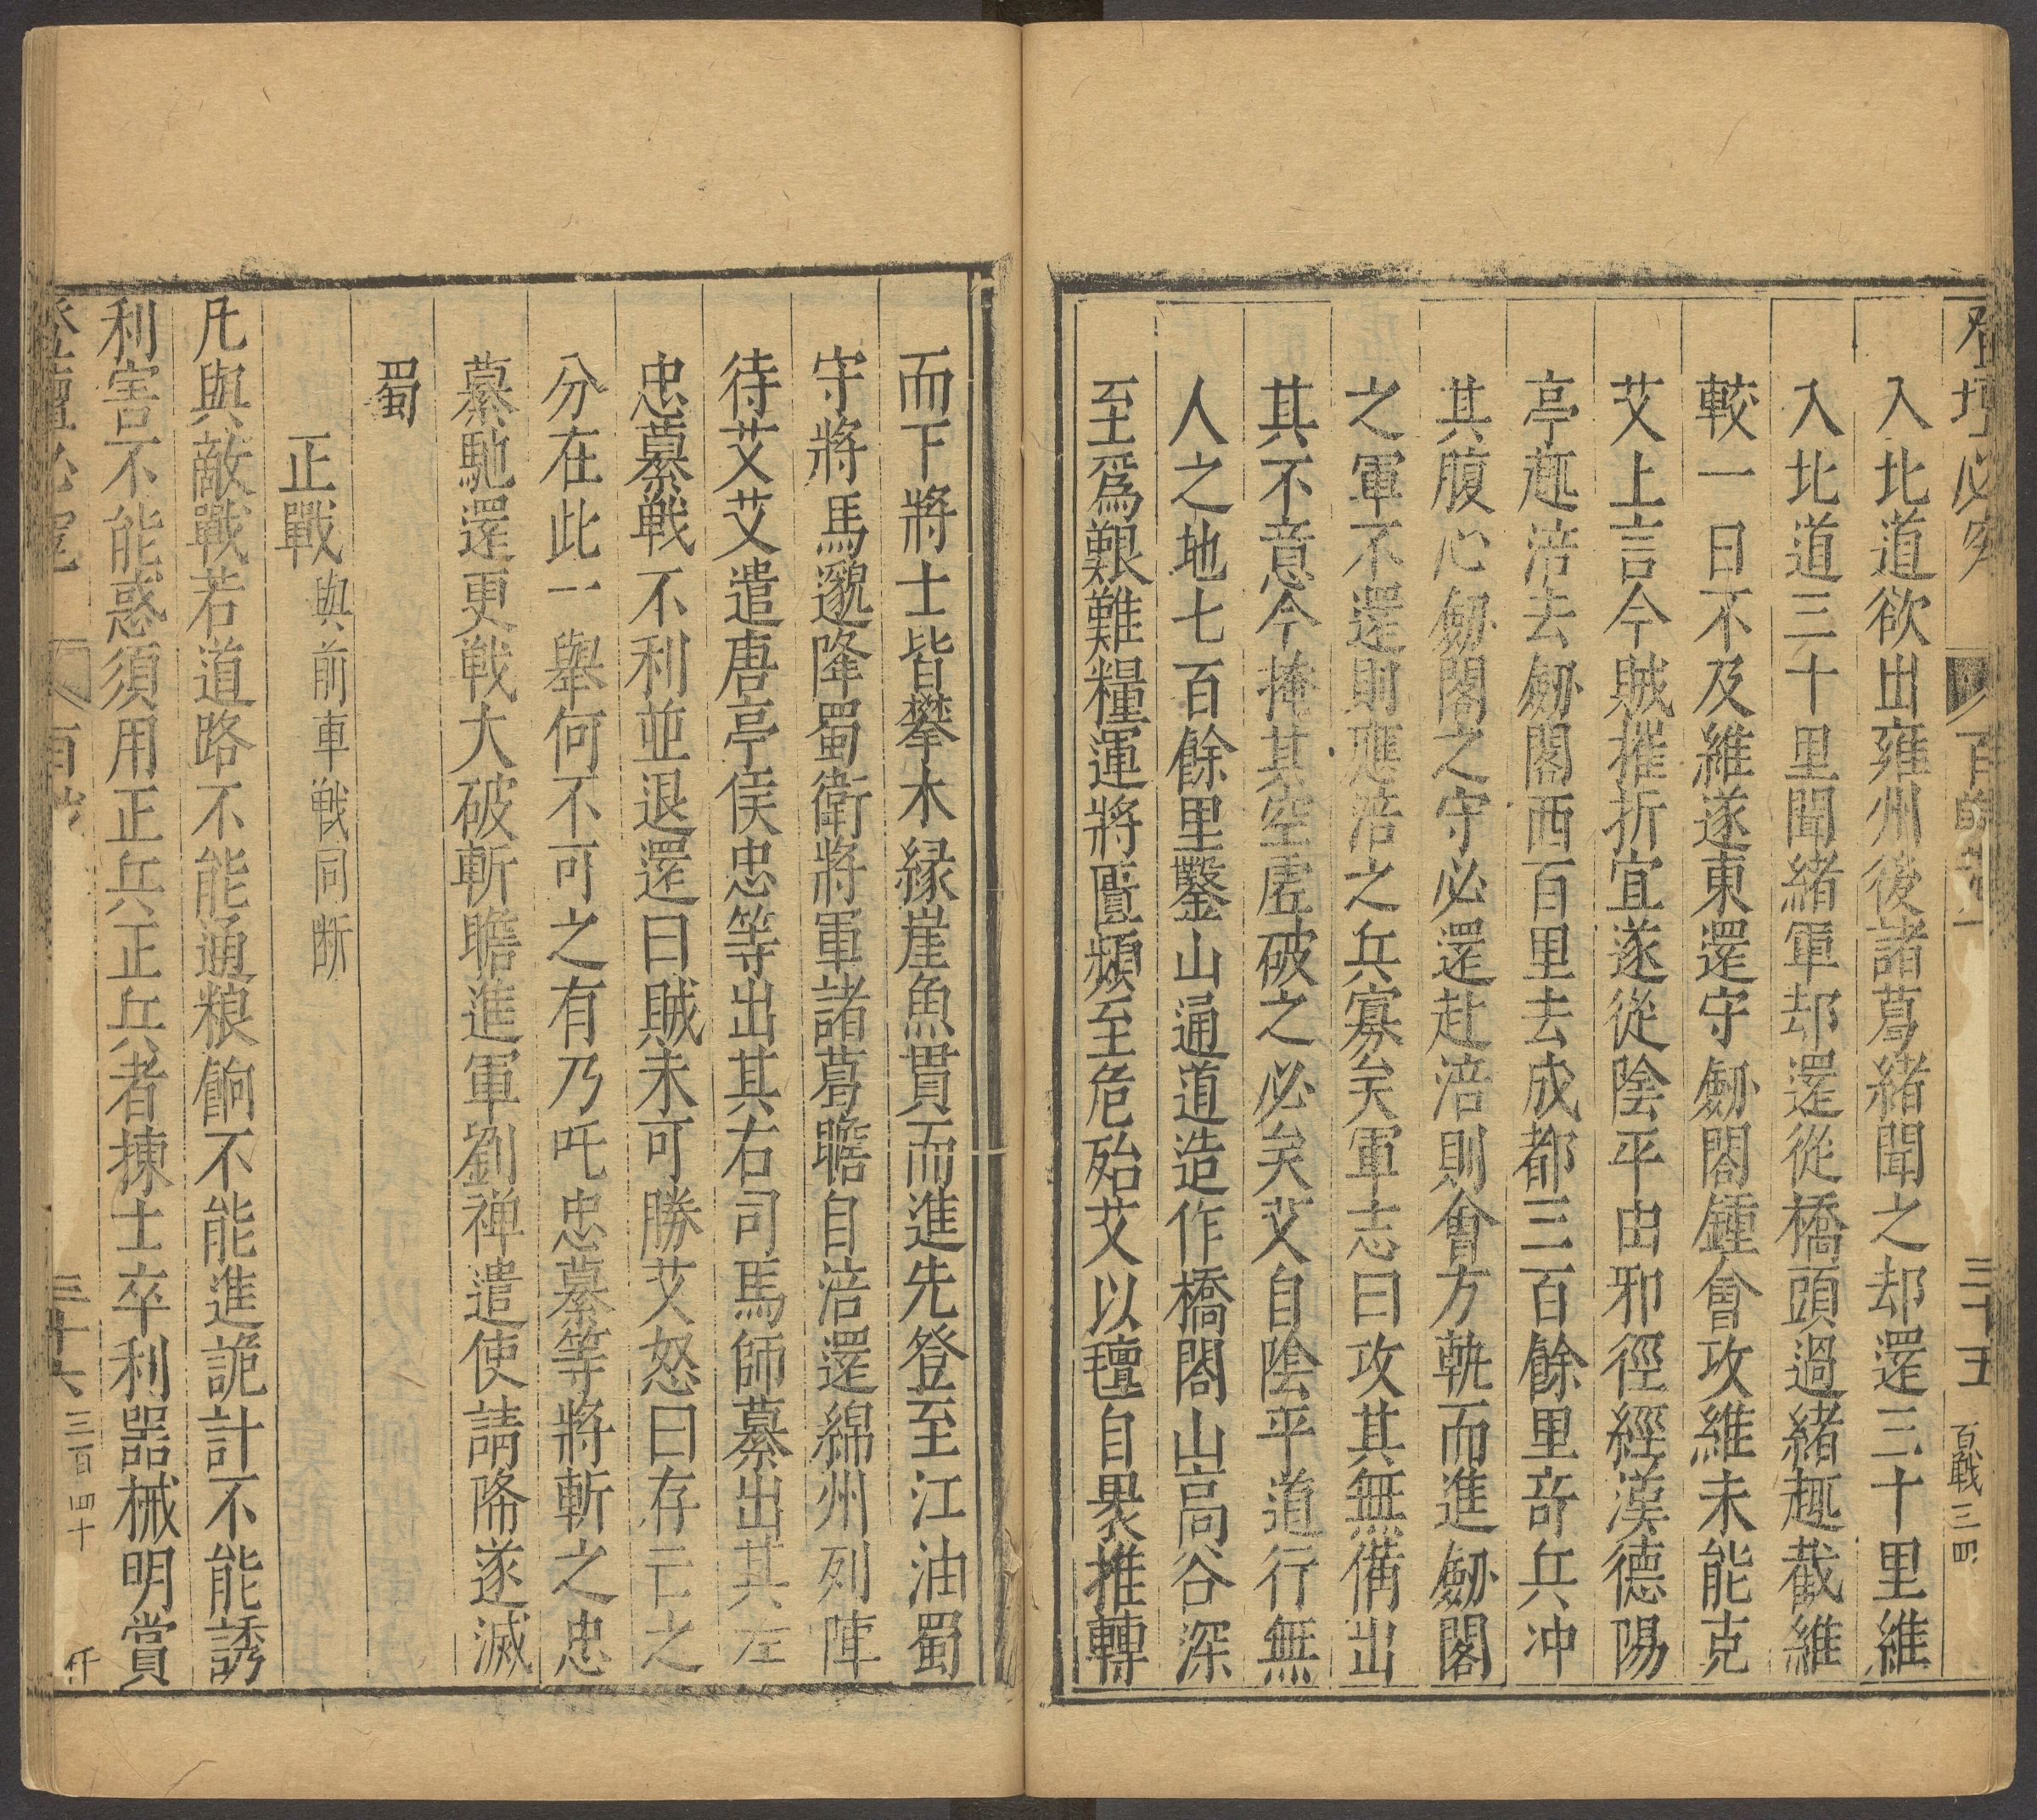 登壇必究
百戰
三十五
百戰三四
入北道欲出雍州後諸葛緒聞之却還三十里維
入北道三十里聞緒軍却還從橋頭過緒趍截維
較一日不及維遂東還守劒閣鍾會攻維未能克
艾上言今賊摧折宜遂從陰平由邪徑經漢德陽
亭趍涪去劒閣西百里去成都三百餘里竒兵冲
其腹心劒閣之守必還赴涪則會方軌而進劒閣
之軍不還則應涪之兵寡矣軍志曰攻其無備出
其不意今掩其空虗破之必矣艾自陰平道行無
人之地七百餘里鑿山通道造作橋閣山高谷深
至爲艱難糧運將匱頻至危殆艾以氊自裹推轉
而下將士皆攀木緣崖魚貫而進先登至江油蜀
守將馬邈降蜀衛將軍諸葛瞻自涪還綿州列陣
待艾艾遣唐亭侯忠等出其右司馬師纂出其左
忠纂戦不利並退還曰賊未可勝艾怒曰存亡之
分在此一舉何不可之有乃吒忠纂等將斬之忠
纂馳還更戦大破斬瞻進軍劉禅遣使請降遂滅
蜀
正戰與前車戦同断
凡與敵戰若道路不能通粮餉不能進詭計不能誘
利害不能惑須用正兵正兵者揀士卒利噐械明賞
登壇必究
百戰
三十六
三百四十
仟